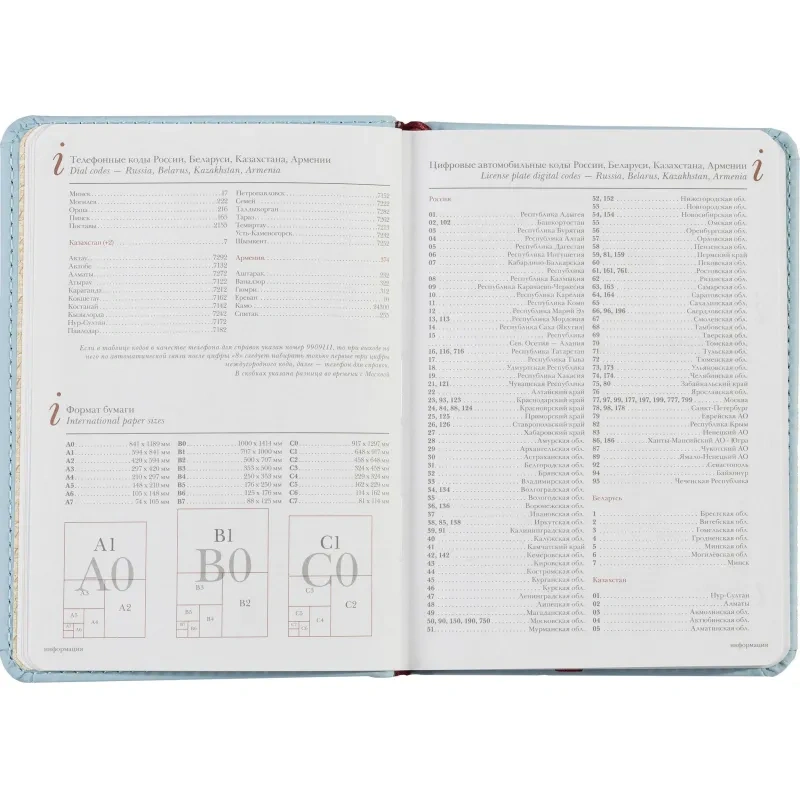 i
Телефонные коды России, Беларуси, Казахстана, Армении
Dial codes — Russia, Belarus, Kazakhstan, Armenia
Минск 17
Могилев 222
Орша 216
Пинск 165
Поставы 2155
Казахстан (+2) 7
Актау 7292
Актобе 7132
Алматы 7272
Атырау 7122
Караганда 7212
Кокшетау 7162
Костанай 7142
Кызылорда 7242
Нур-Султан 7172
Павлодар 7182
Петропавловск 7152
Семей 7222
Талдыкорган 7282
Тараз 7262
Темиртау 7213
Усть-Каменогорск 7232
Шымкент 7252
Армения 374
Аштарак 232
Ванадзор 322
Гюмри 312
Ереван 10
Камо
Спитак 255
Если в таблице кодов в качестве телефона для справок указан номер 9909111, то при выходе на
него по автоматической связи после цифры «8» следует набирать только первые три цифры
междугородного кода, далее — телефон для справок.
В скобках указана разница во времени с Москвой.
i
Формат бумаги
International paper sizes
A0 841 x 1189 мм B0 1000 x 1414 мм C0 917 x 1297 мм
A1 594 x 841 мм B1 707 x 1000 мм C1 648 x 917 мм
A2 420 x 594 мм B2 500 x 707 мм C2 458 x 648 мм
A3 297 x 420 мм B3 353 x 500 мм C3 324 x 458 мм
A4 210 x 297 мм B4 250 x 353 мм C4 229 x 324 мм
A5 148 x 210 мм B5 176 x 250 мм C5 162 x 229 мм
A6 105 x 148 мм B6 125 x 176 мм C6 114 x 162 мм
A7 74 x 105 мм B7 88 x 125 мм C7 81 x 114 мм
A1
A0
A3
A2
A5
A4
B1
B0
B3
B2
B5
B4
C1
C0
C3
C2
C5
C4
информация
Цифровые автомобильные коды России, Беларуси, Казахстана, Армении
License plate digital codes — Russia, Belarus, Kazakhstan, Armenia
i
Россия
01 Республика Адыгея
02, 102 Башкортостан
03 Республика Бурятия
04 Республика Алтай
05 Республика Дагестан
06 Республика Ингушетия
07 Кабардино-Балкарская
Республика
08 Республика Калмыкия
09 Республика Карачаево-Черкесия
10 Республика Карелия
11 Республика Коми
12 Республика Марий Эл
13, 113 Республика Мордовия
14 Республика Саха (Якутия)
15 Республика
Сев. Осетия — Алания
16, 116, 716 Республика Татарстан
17 Республика Тыва
18 Удмуртская Республика
19 Республика Хакасия
21, 121 Чувашская Республика
22 Алтайский край
23, 93, 123 Краснодарский край
24, 84, 88, 124 Красноярский край
25, 125 Приморский край
26, 126 Ставропольский край
27 Хабаровский край
28 Амурская обл.
29 Архангельская обл.
30 Астраханская обл.
31 Белгородская обл.
32 Брянская обл.
33 Владимирская обл.
34, 134 Волгоградская обл.
35 Вологодская обл.
36, 136 Воронежская обл.
37 Ивановская обл.
38, 85, 138 Иркутская обл.
39, 91 Калининградская обл.
40 Калужская обл.
41 Камчатский край
42, 142 Кемеровская обл.
43 Кировская обл.
44 Костромская обл.
45 Курганская обл.
46 Курская обл.
47 Ленинградская обл.
48 Липецкая обл.
49 Магаданская обл.
50, 90, 150, 190, 750 Московская обл.
51 Мурманская обл.
52, 152 Нижегородская обл.
53 Новгородская обл.
54, 154 Новосибирская обл.
55 Омская обл.
56 Оренбургская обл.
57 Орловская обл.
58 Пензенская обл.
59, 81, 159 Пермский край
60 Псковская обл.
61, 161, 761 Ростовская обл.
62 Рязанская обл.
63, 163 Самарская обл.
64, 164 Саратовская обл.
65 Сахалинская обл.
66, 96, 196 Свердловская обл.
67 Смоленская обл.
68 Тамбовская обл.
69 Тверская обл.
70 Томская обл.
71 Тульская обл.
72 Тюменская обл.
73, 173 Ульяновская обл.
74, 174 Челябинская обл.
75, 80 Забайкальский край
76 Ярославская обл.
77, 97, 99, 177, 197, 199, 777, 799 Москва
78, 98, 178 Санкт-Петербург
79 Еврейская АО
82 Республика Крым
83 Ненецкий АО
86, 186 Ханты-Мансийский АО - Югра
87 Чукотский АО
89 Ямало-Ненецкий АО
92 Севастополь
94 Байконур
95 Чеченская Республика
Беларусь
1 Брестская обл.
2 Витебская обл.
3 Гомельская обл.
4 Гродненская обл.
5 Минская обл.
6 Могилевская обл.
7 Минск
Казахстан
01 Нур-Султан
02 Алматы
03 Акмолинская обл.
04 Актюбинская обл.
05 Алматинская обл.
информация